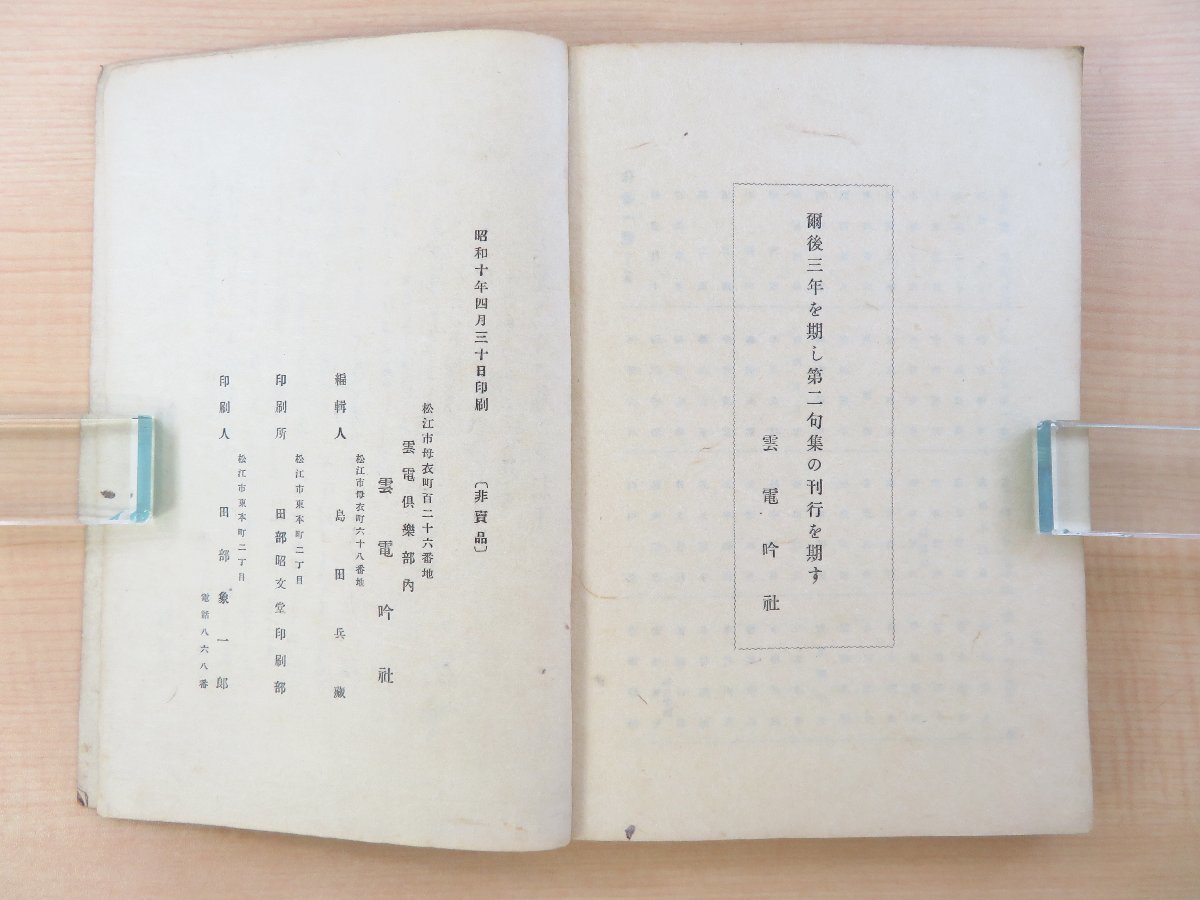 爾後三年を期し第二句集の刊行を期す
雲電吟社
昭和十年四月三十日印刷 〔非賣品〕
松江市母衣町百二十六番地
雲電倶樂部內
雲電吟社
松江市母衣町六十八番地
編輯人 島田兵藏
松江市東本町二丁目
印刷所 田部昭文堂印刷部
松江市東本町二丁目
印刷人 田部象一郎
電話八六八番